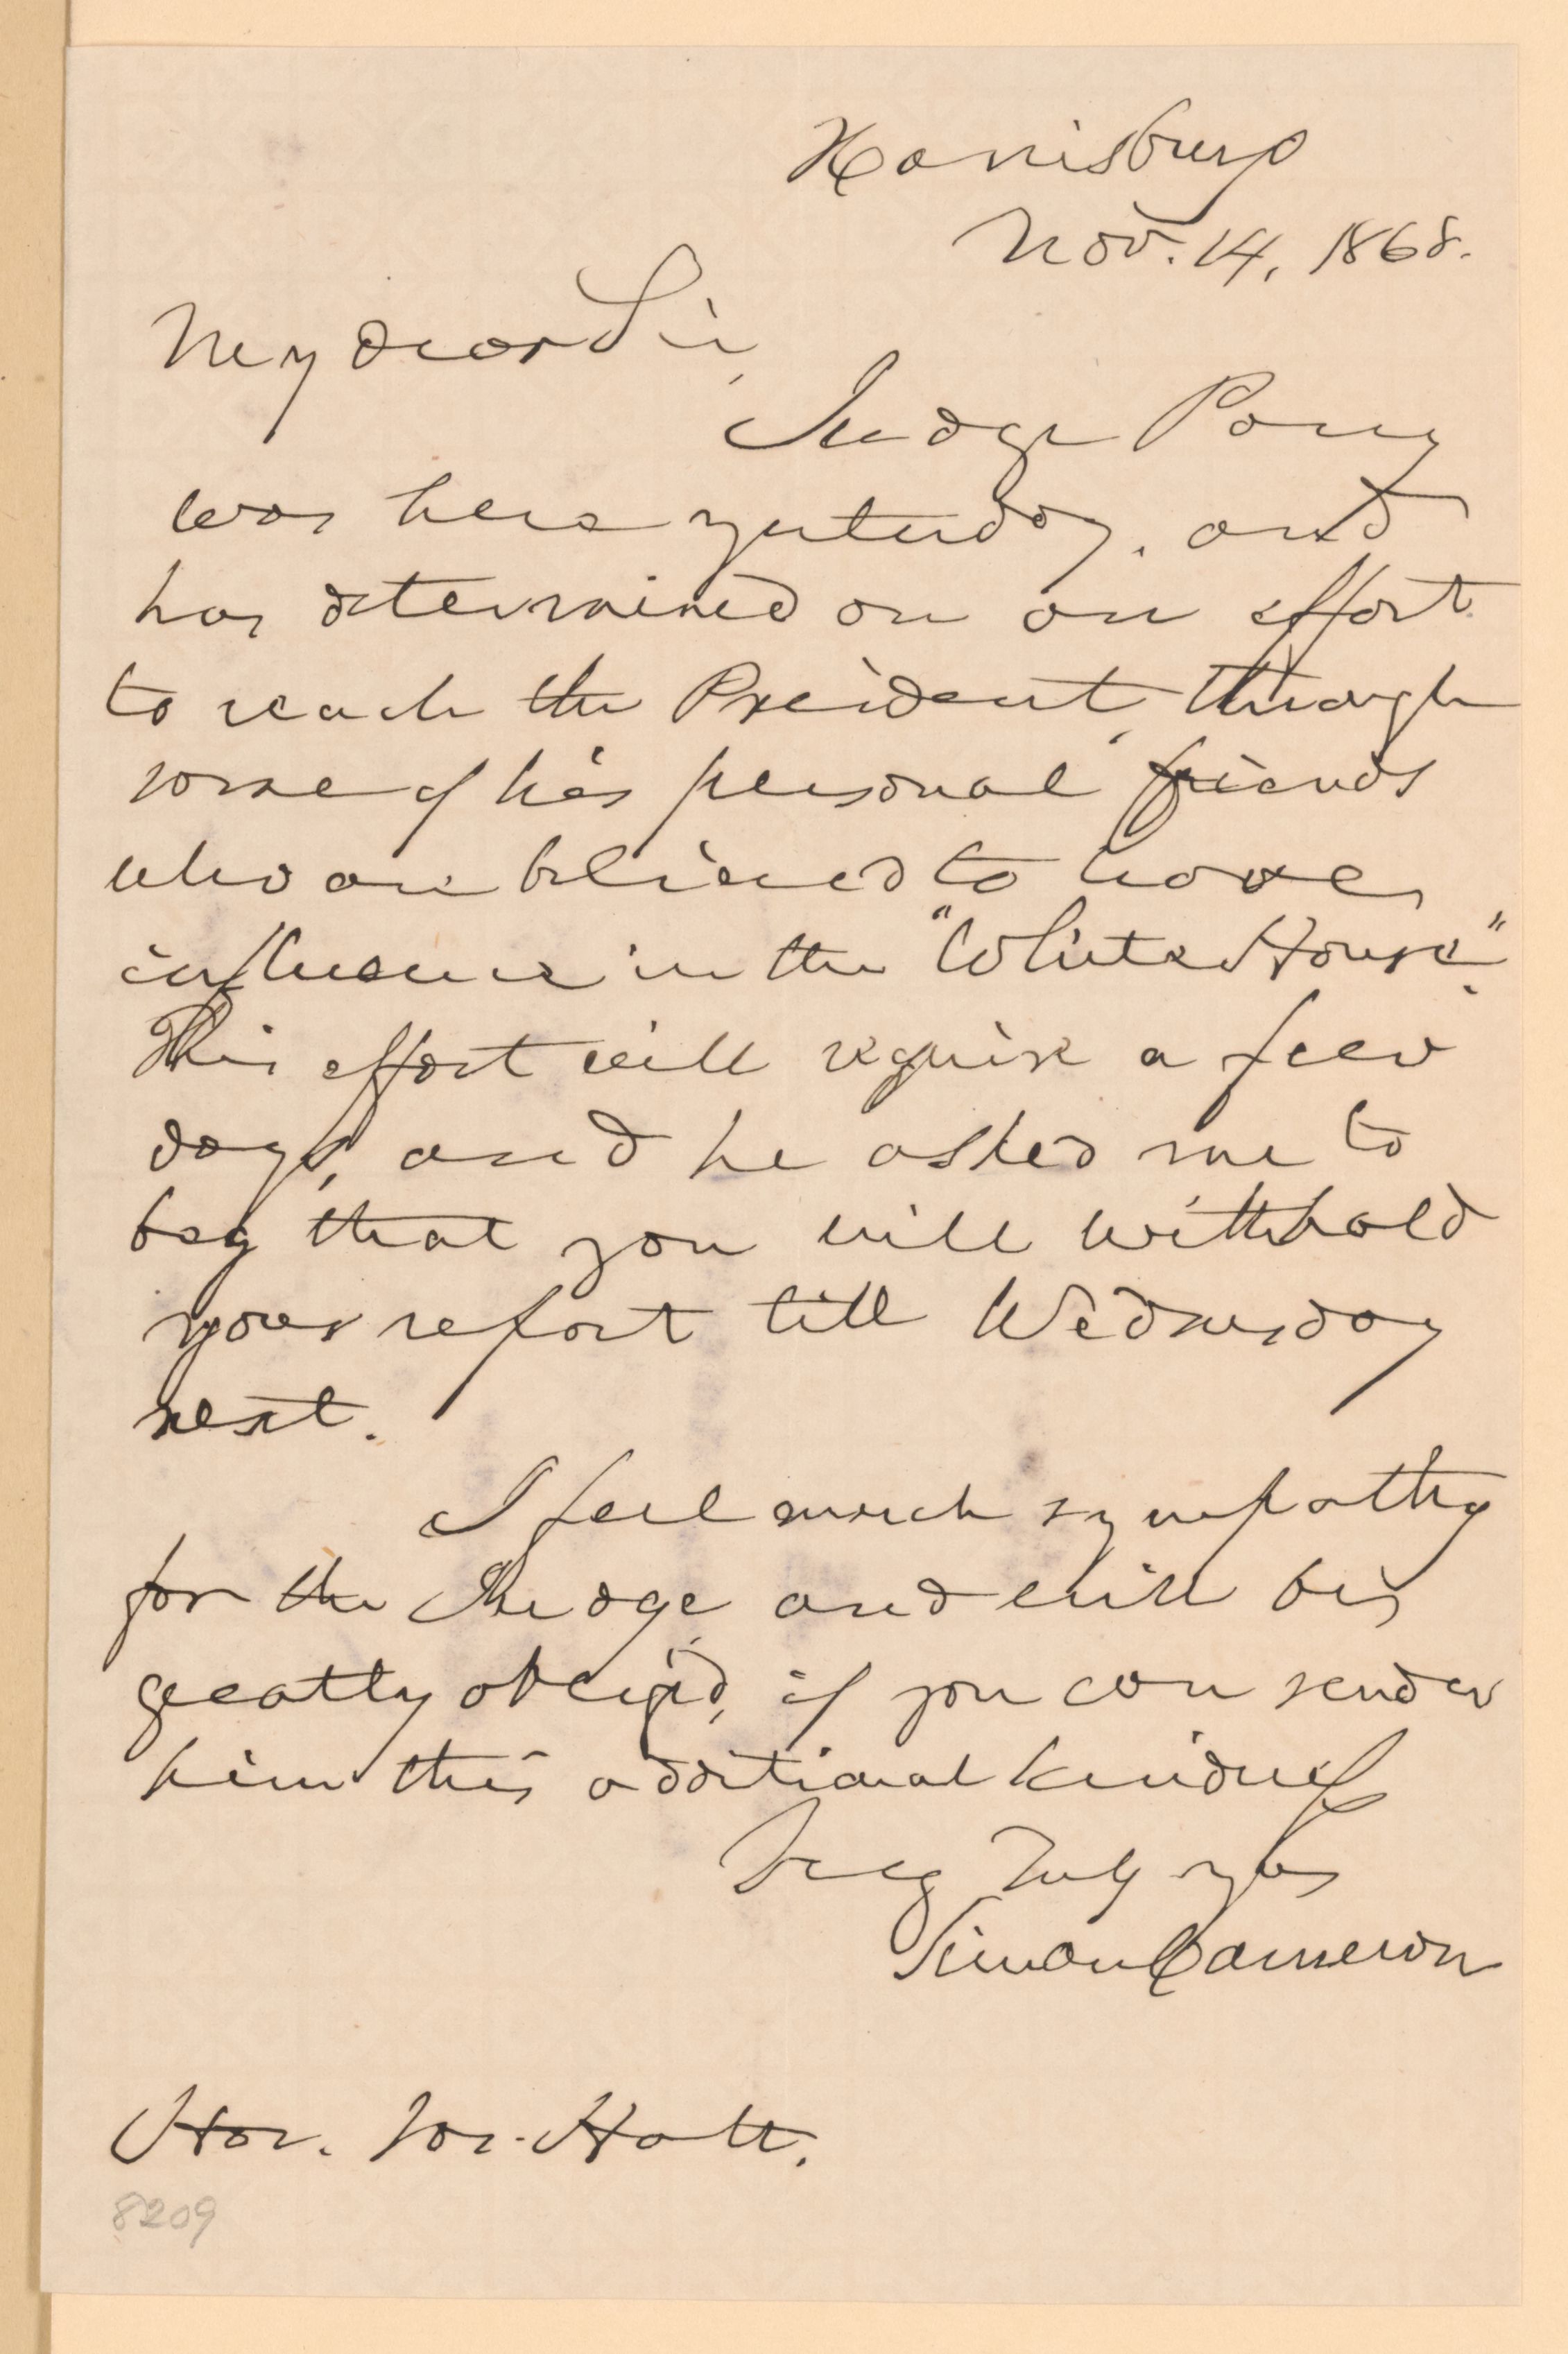 Harrisburg
Nov. 14, 1868.
My dear Sir,
Judge
was here yesterday, and
has determined on an effort
to reach the President, through
some of his personal friends
who are believed to have
influence in the "White House".
This effort will require a few
days, and he asked me to
beg that you will withhold
your report till Wednesday
next.
I feel much sympathy
for the Judge, and will be
greatly oblig'd, if you can render
him this additional kindness
Very Truly yrs
Simon Cameron
Hon. Holt.
8209